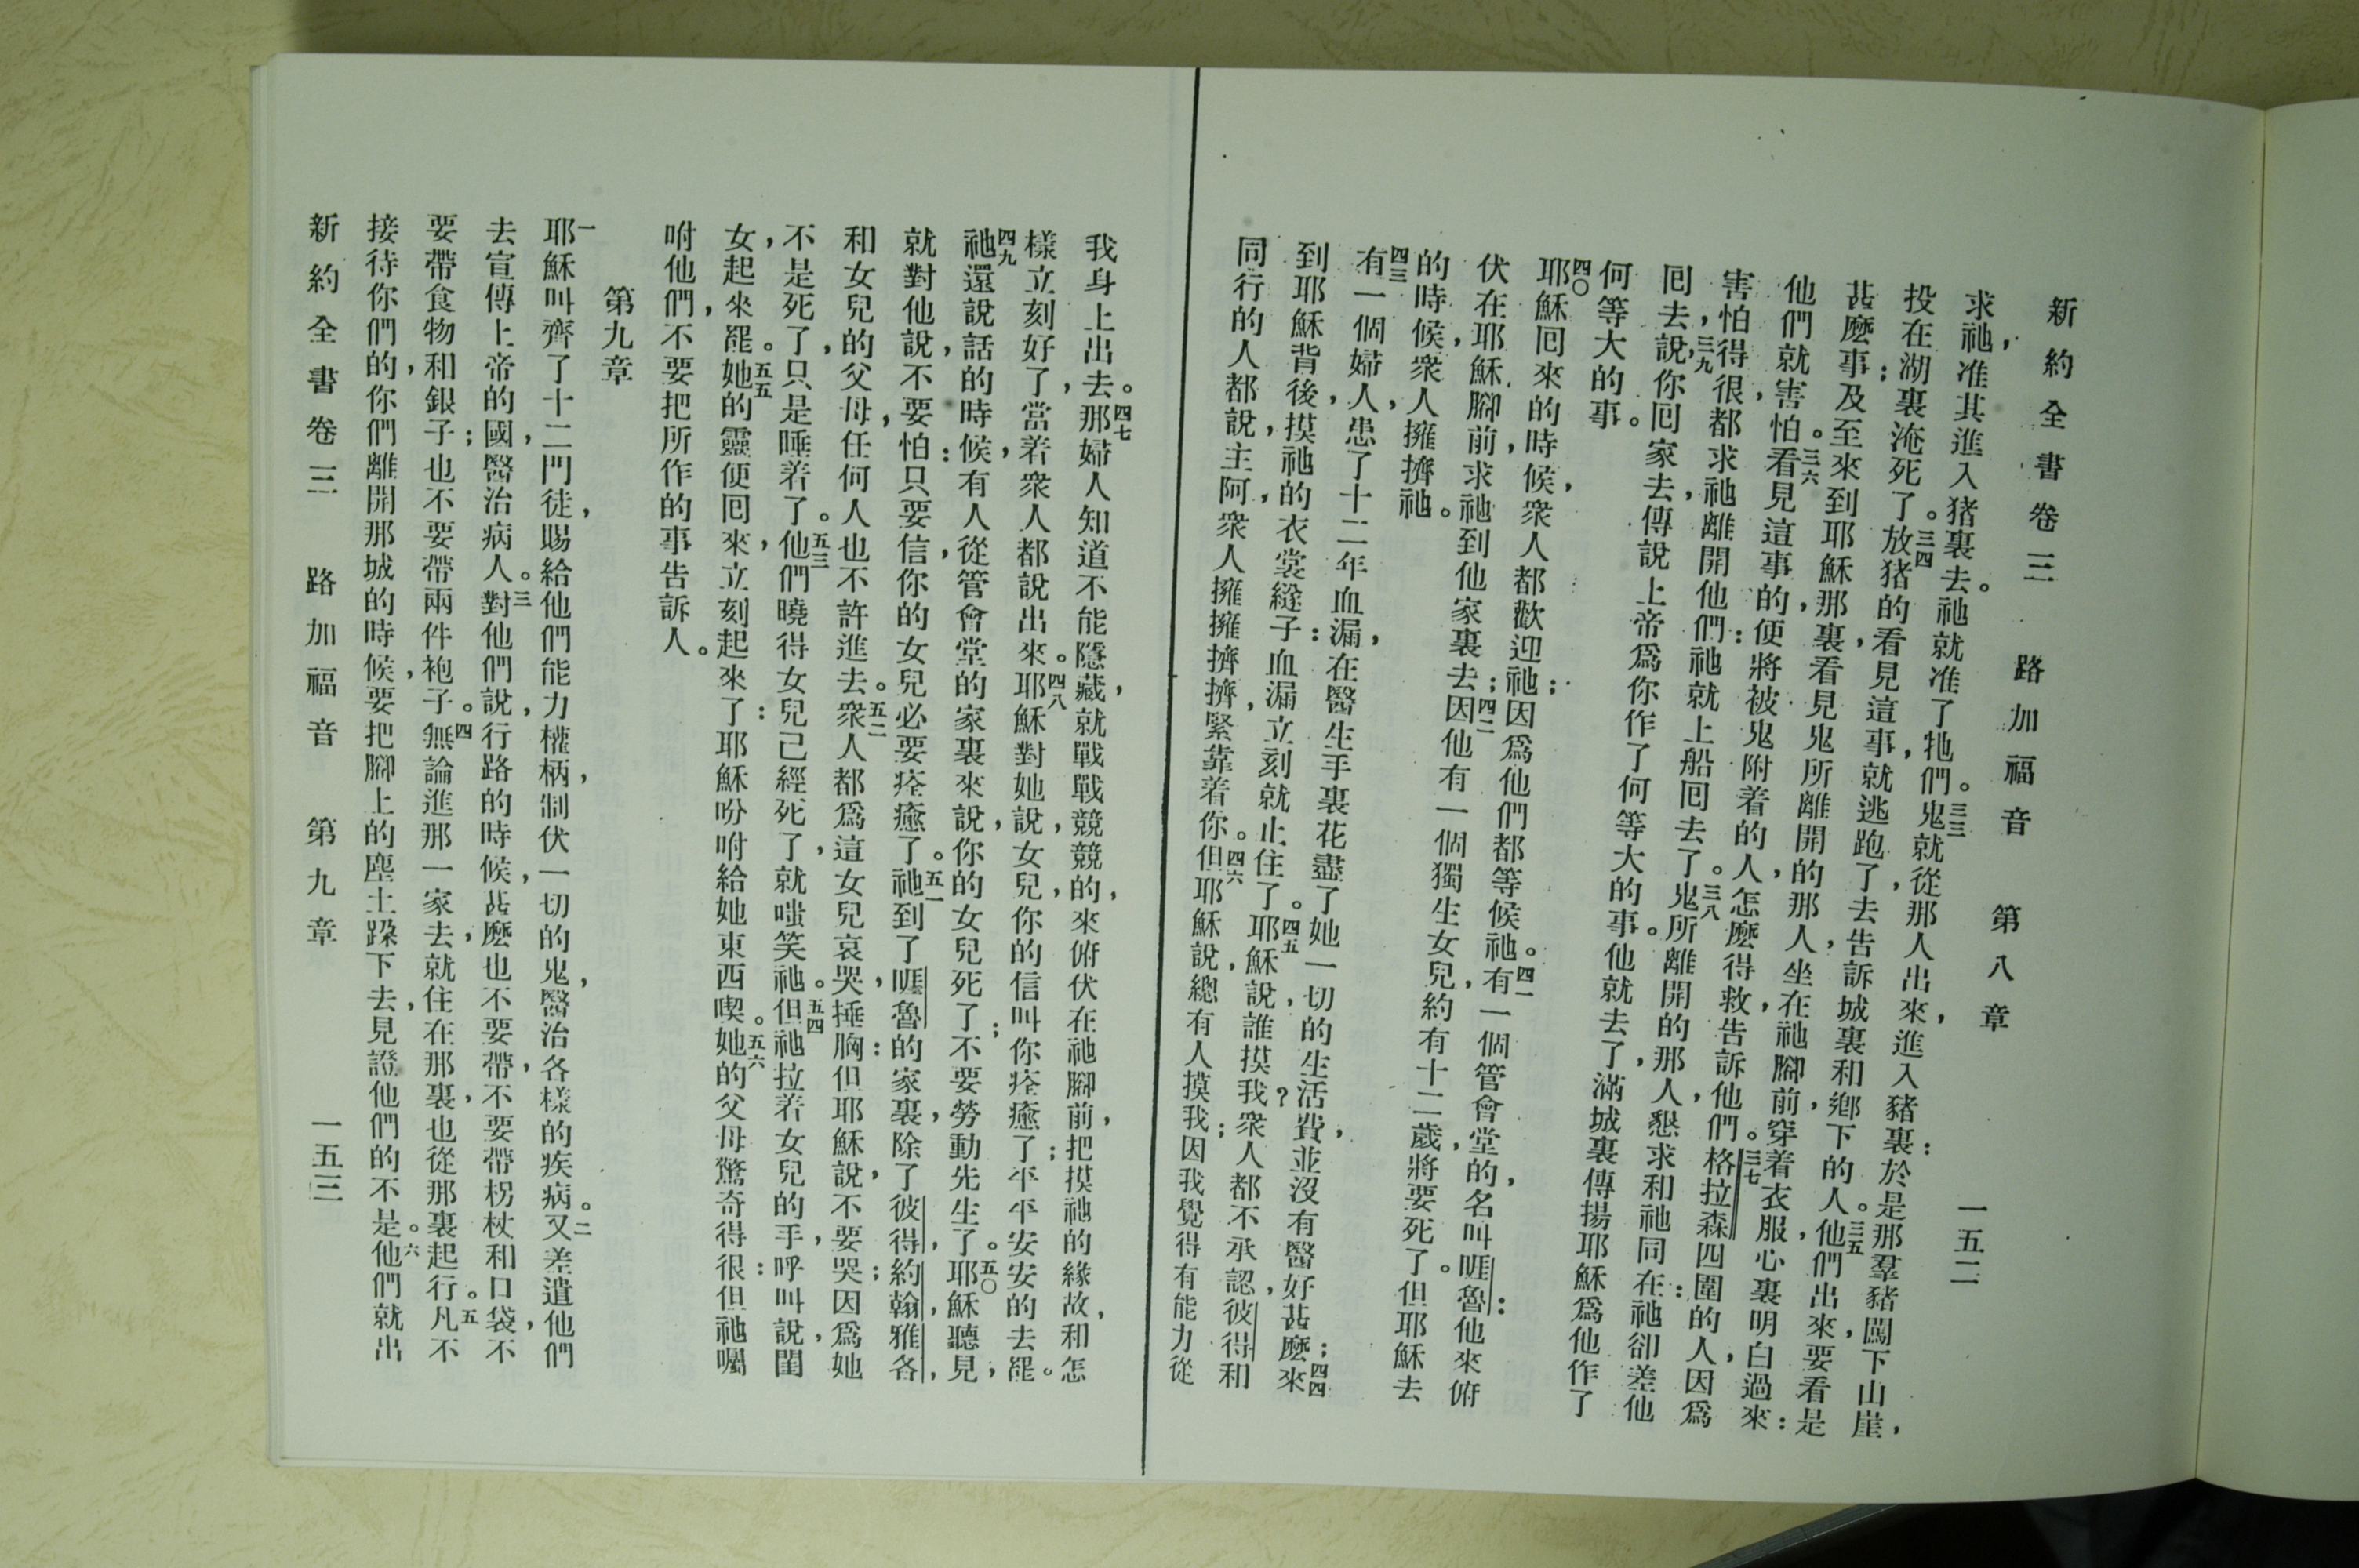 新約全書卷三　路加福音　第八章　一五二
求祂，准其進入猪裏去。祂就准了牠們。三三鬼就從那人出來，進入豬裏：於是那羣豬闖下山崖，
投在湖裏淹死了。三四放猪的看見這事，就逃跑了，去告訴城裏和鄉下的人。三五他們出來，要看是
甚麼事；及至來到耶穌那裏，看見鬼所離開的那人，坐在祂腳前，穿着衣服，心裏明白過來：
他們就害怕。三六看見這事的，便將被鬼附着的人，怎麼得救，告訴他們。三七格拉森四圍的人，因爲
害怕得很，都求祂離開他們：祂就上船回去了。三八鬼所離開的那人，懇求和祂同在：祂卻差他
回去，三九說，你回家去，傳說上帝爲你作了何等大的事。他就去了，滿城裏傳揚耶穌爲他作了
何等大的事。
四〇耶穌回來的時候，衆人都歡迎祂；因爲他們都等候祂。四一有一個管會堂的，名叫睚魯：他來俯
伏在耶穌腳前，求祂到他家裏去；四二因他有一個獨生女兒，約有十二歲，將要死了。但耶穌去
的時候，衆人擁擠祂。
四三有一個婦人，患了十二年血漏，在醫生手裏花盡了她一切的生活費，並沒有醫好甚麼；四四來
到耶穌背後，摸祂的衣裳繸子：血漏立刻就止住了。四五耶穌說，誰摸我？衆人都不承認，彼得和
同行的人都說，主阿，衆人擁擁擠擠，緊靠着你。四六但耶穌說，總有人摸我；因我覺得有能力從
我身上出去。四七那婦人知道不能隱藏，就戰戰競競的，來俯伏在祂腳前，把摸祂的緣故，和怎
樣立刻好了，當着衆人都說出來。四八耶穌對她說，女兒，你的信叫你痊癒了；平平安安的去罷。
四九祂還說話的時候，有人從管會堂的家裏來，說，你的女兒死了；不要勞動先生了。五〇耶穌聽見，
就對他說，不要怕：只要信，你的女兒必要痊癒了。五一祂到了睚魯的家裏，除了彼得，約翰，雅各，
和女兒的父母，任何人也不許進去。五二衆人都爲這女兒哀哭，捶胸：但耶穌說，不要哭；因爲她
不是死了，只是睡着了。五三他們曉得女兒已經死了，就嗤笑祂。五四但祂拉着女兒的手，呼叫說，閨
女，起來罷。五五她的靈便回來，立刻起來了：耶穌吩咐給她東西喫。五六她的父母驚奇得很：但祂囑
咐他們，不要把所作的事告訴人。
第九章
一耶穌叫齊了十二門徒，賜給他們能力權柄，制伏一切的鬼，醫治各樣的疾病。二又差遣他們
去宣傳上帝的國，醫治病人。三對他們說，行路的時候，甚麼也不要帶，不要帶柺杖和口袋，不
要帶食物和銀子；也不要帶兩件袍子。四無論進那一家去，就住在那裏，也從那裏起行。五凡不
接待你們的，你們離開那城的時候，要把腳上的塵土跺下去，見證他們的不是。六他們就出
新約全書卷三　路加福音　第九章　一五三